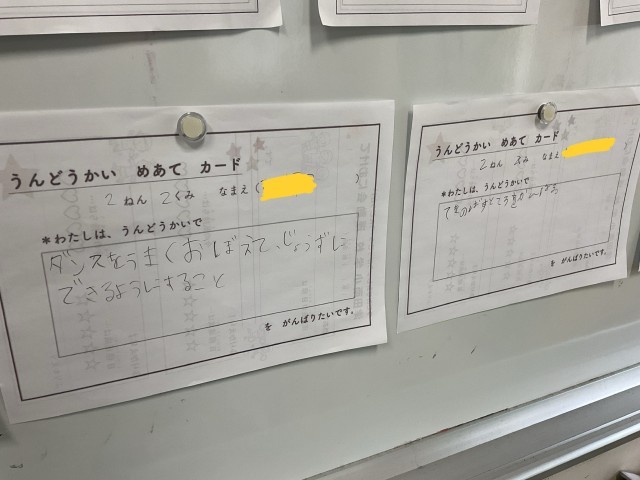 うんどうかい めあて カード
2 ねん 2くみ なまえ(
*わたしは、うんどうかいで
ダンスをうまくおぼえて、じょうずに
できるようにすること
を がんばりたいです。
うんどうかい めあて カード
2 ねん くみ なまえ
*わたしは、うんどうかいで
を がんばりたいです。